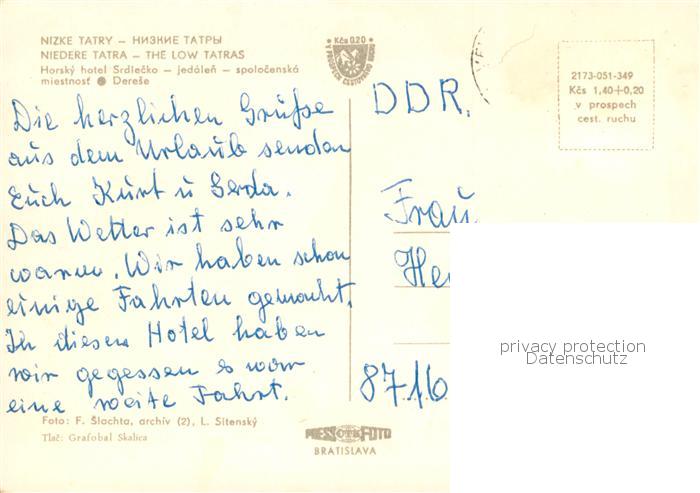 NIZKE TATRY – НИЗКИЕ ТАТРЫ
NIEDERE TATRA – THE LOW TATRAS
Horský hotel Srdiečko – jedáleň – spoločenská
miestnosť ● Dereše
Kčs 0.20
V PROSPECH CESTOVNÉHO RUCHU
2173-051-349
Kčs 1,40+0,20
v prospech
cest. ruchu
Die herzlichen Grüße
aus dem Urlaub senden
Euch Kurt u Gerda.
Das Wetter ist sehr
warm. Wir haben schon
einige Fahrten gemacht.
In diesem Hotel haben
wir gegessen es war
eine weite Fahrt.
DDR.
Frau
He
8716
privacy protection
Datenschutz
Foto: F. Šlachta, archív (2), L. Sitenský
Tlač: Grafobal Skalica
PRESSFOTO
BRATISLAVA